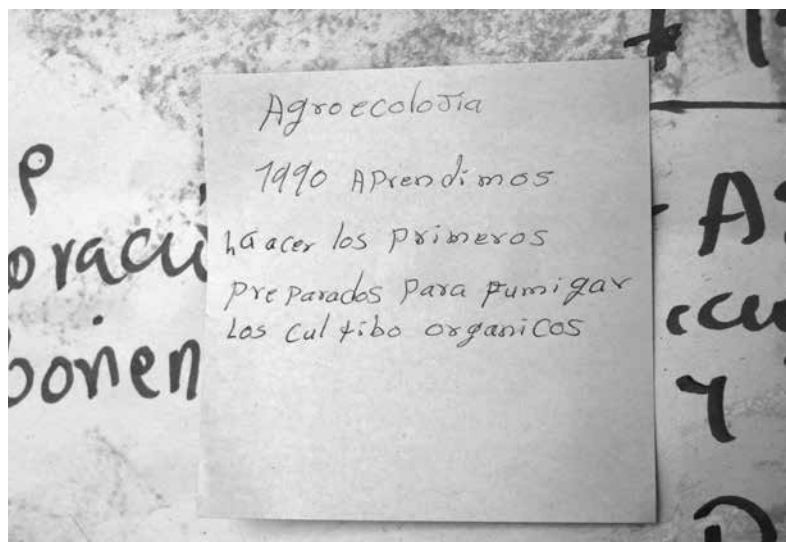 Agroecolojia
1990 Aprendimos
há acer los primeros
preparados para fumigar
Los cultibo organicos
P
oracu
onen
As
y